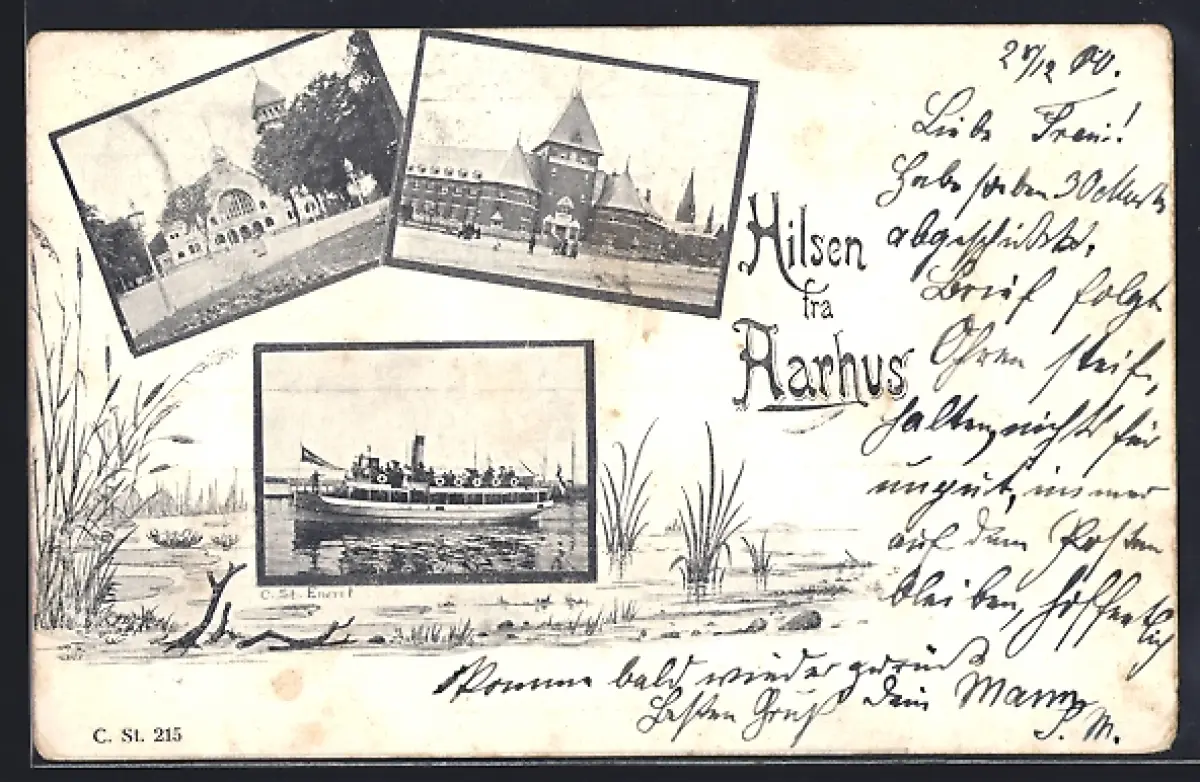 Hilsen
fra
Aarhus
C. St. Eneret
C. St. 215
Liebe Frau!
Habe soeben 30 Mark
abgeschickt.
Brief folgt
Ohren steif
halten, nicht für
ungut, immer
auf dem Posten
bleiben, hoffentlich
Komme bald wieder zurück
Besten Gruß Dein Mann
P. M.